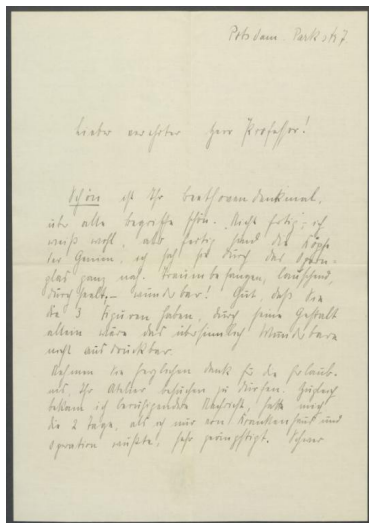 Potsdam. Parkstr 7.
Lieber verehrter Herr Professor!
Schön ist Ihr Beethovendenkmal,
über alle Begriffe schön. Nicht fertig; ich
weiß wohl, aber fertig sind die Köpfe
der Genien, ich sah sie durch das Opern-
glas ganz nah. Traumbefangen, lauschend,
durchseelt, – wunderbar! Gut, daß Sie
die 3 Figuren haben, durch seine Gestalt
allein wäre das übersinnlich Wunderbare
nicht ausdrückbar.
Nehmen Sie herzlichen Dank für die Erlaub-
nis, Ihr Atelier besuchen zu dürfen. Zugleich
bekam ich beruhigende Nachricht, hatte mich
die 2 Tage, als ich nur von Krankenhaus und
Operation wußte, sehr geängstigt. Schwer